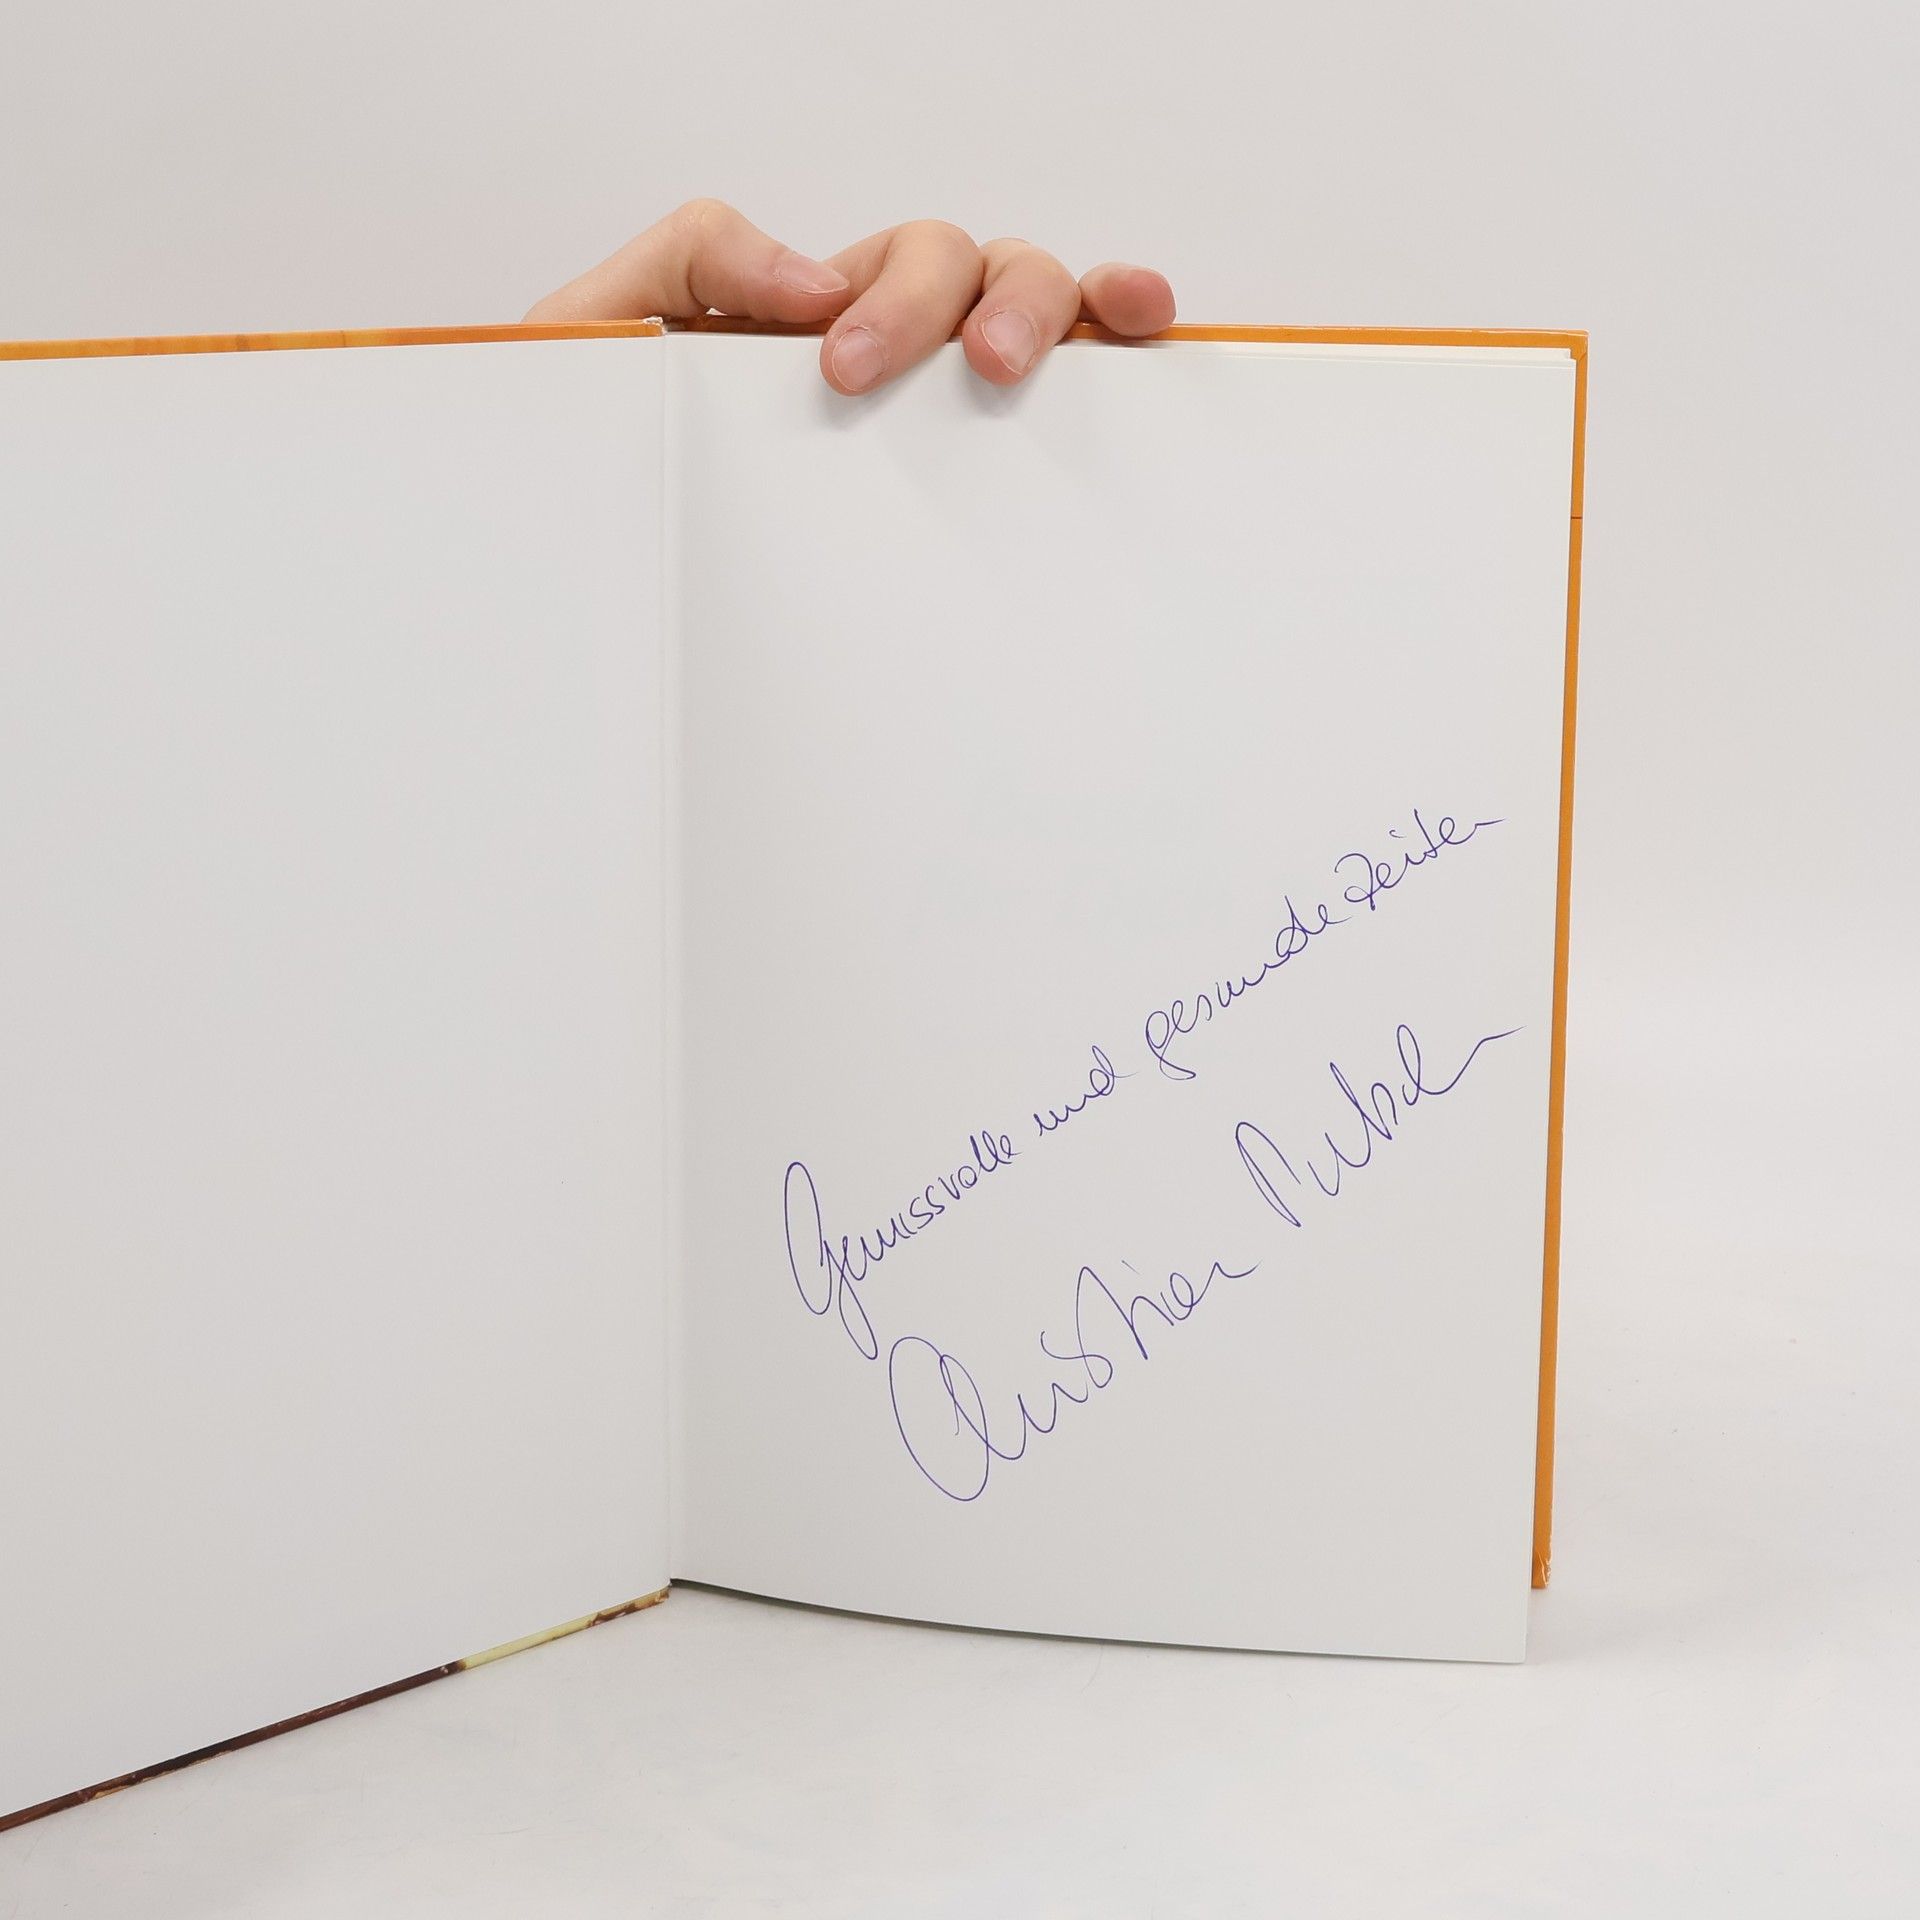 Genussvolle und gesunde Zeiten
Christian